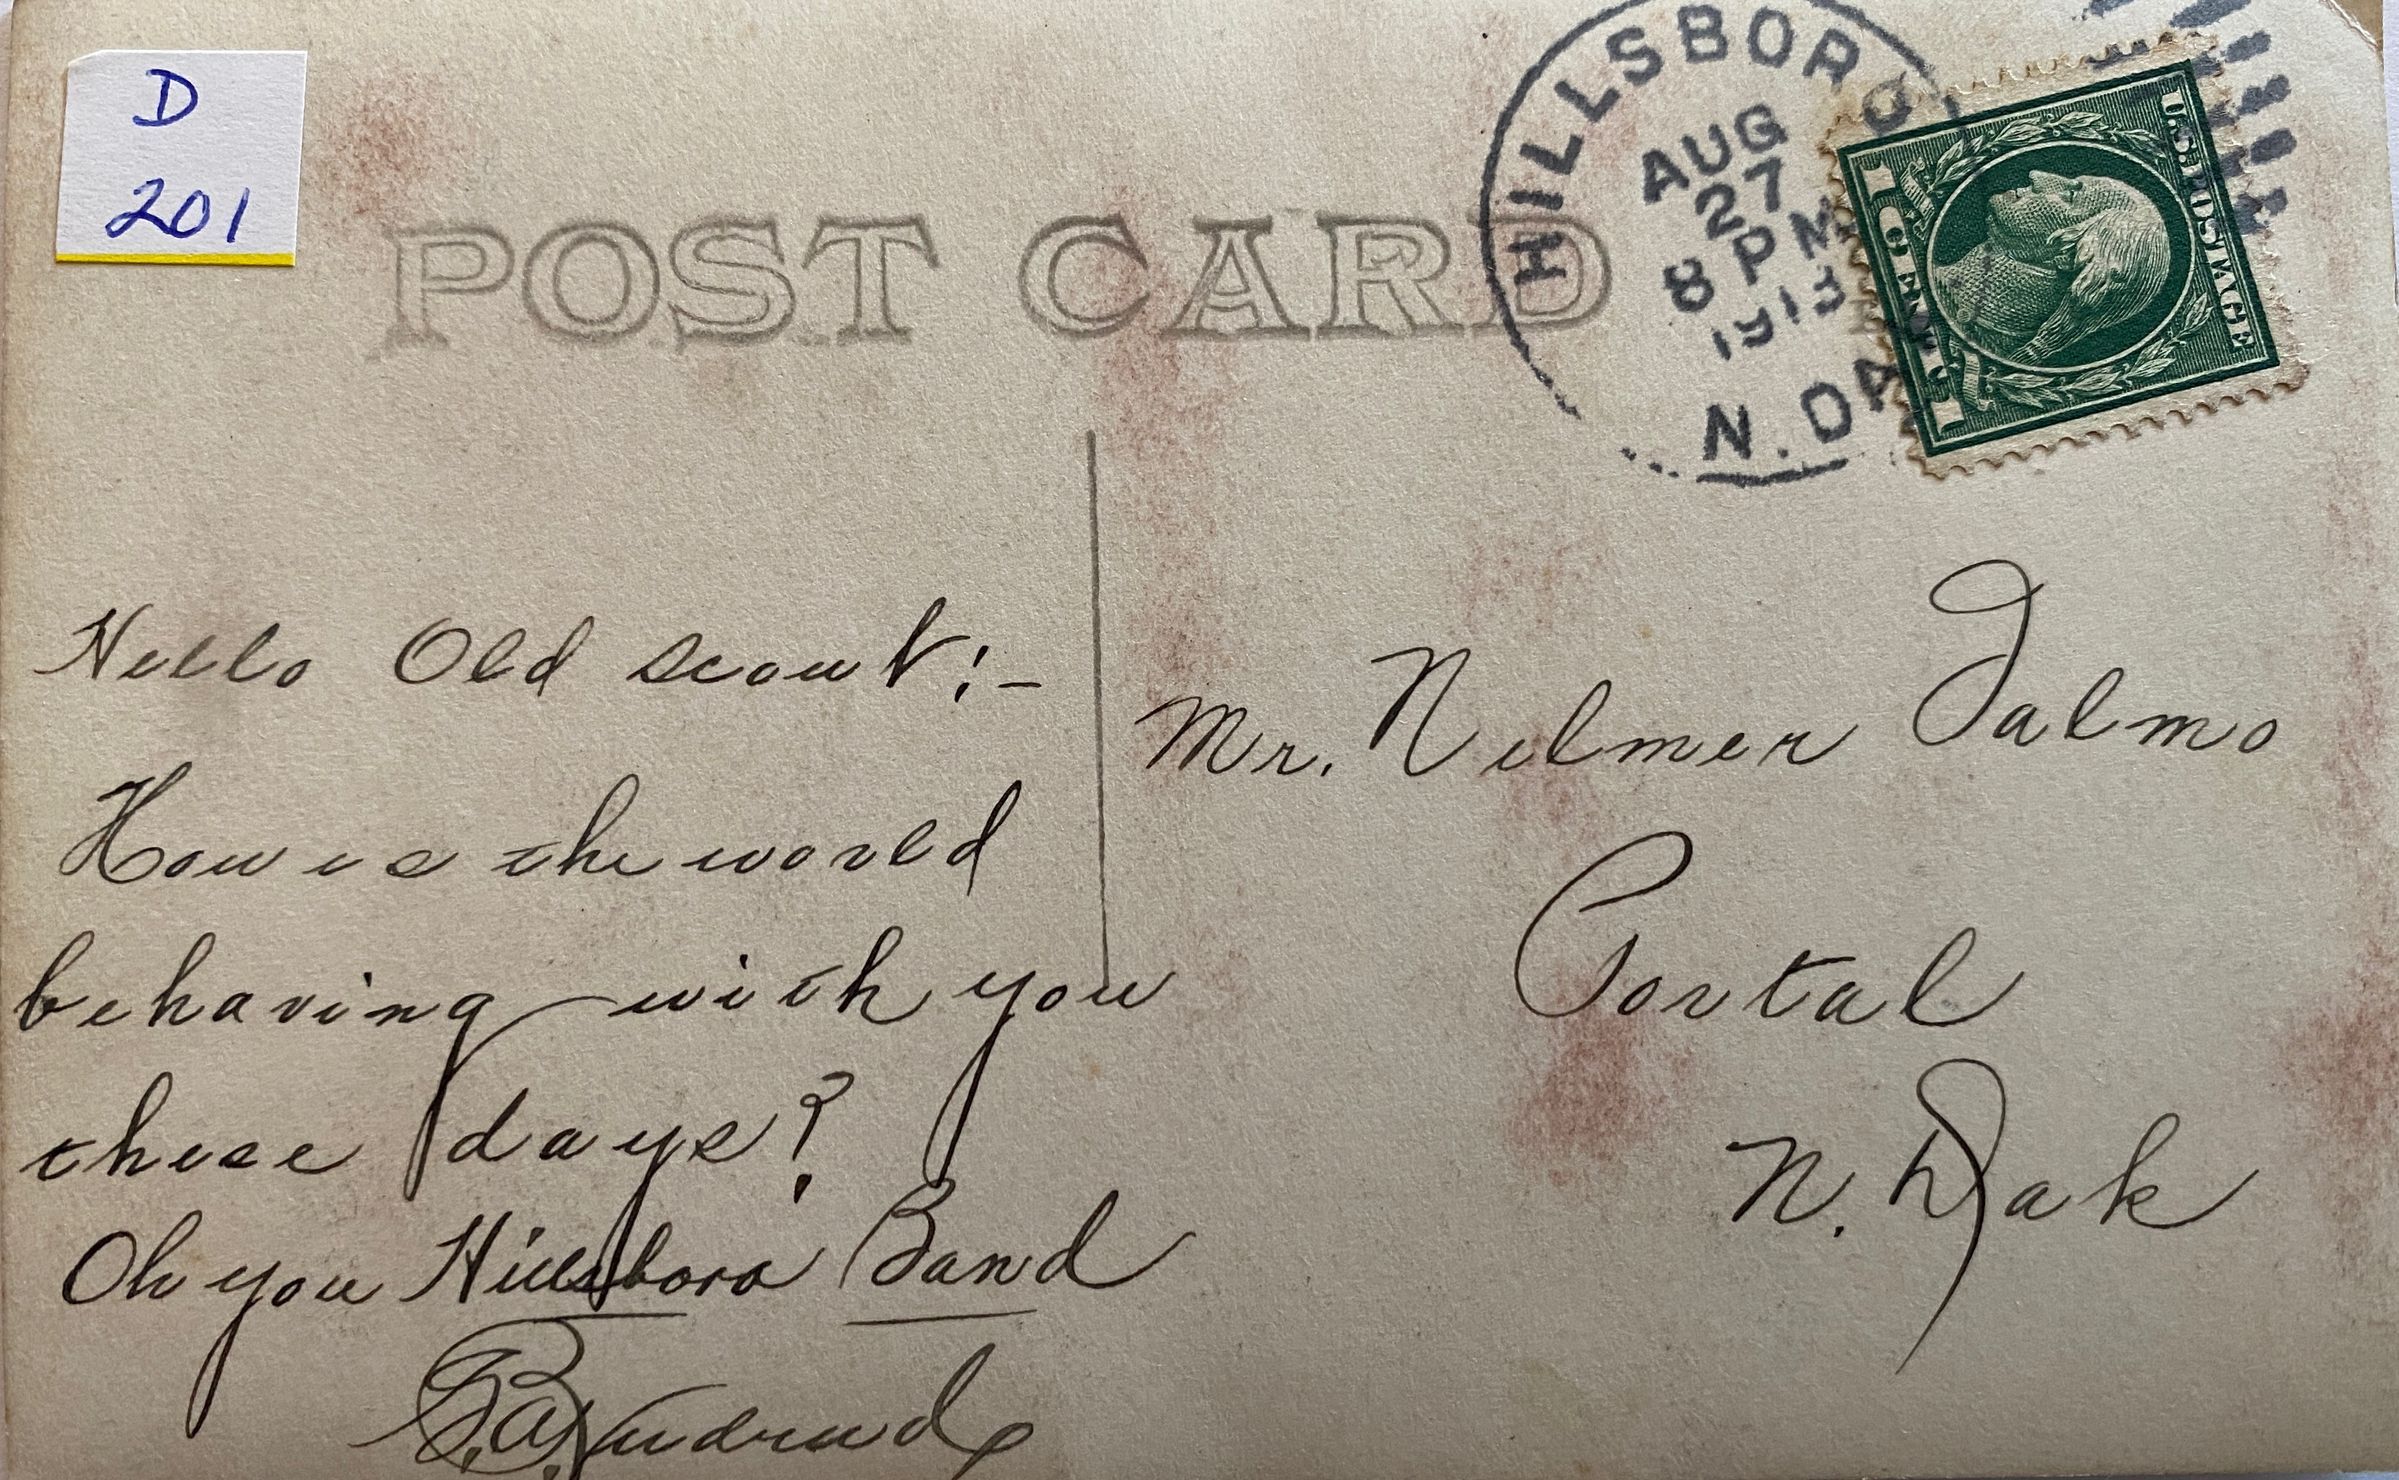 D
201
POST CARD
HILLSBORO
AUG
27
8 PM
1913
N. DAK.
U.S. POSTAGE
1 CENT 1
Hello Old Scout:-
How is the world
behaving with you
these days?
Oh you Hillsboro Band
Mr. Nelmer Talmo
Portal
N. Dak